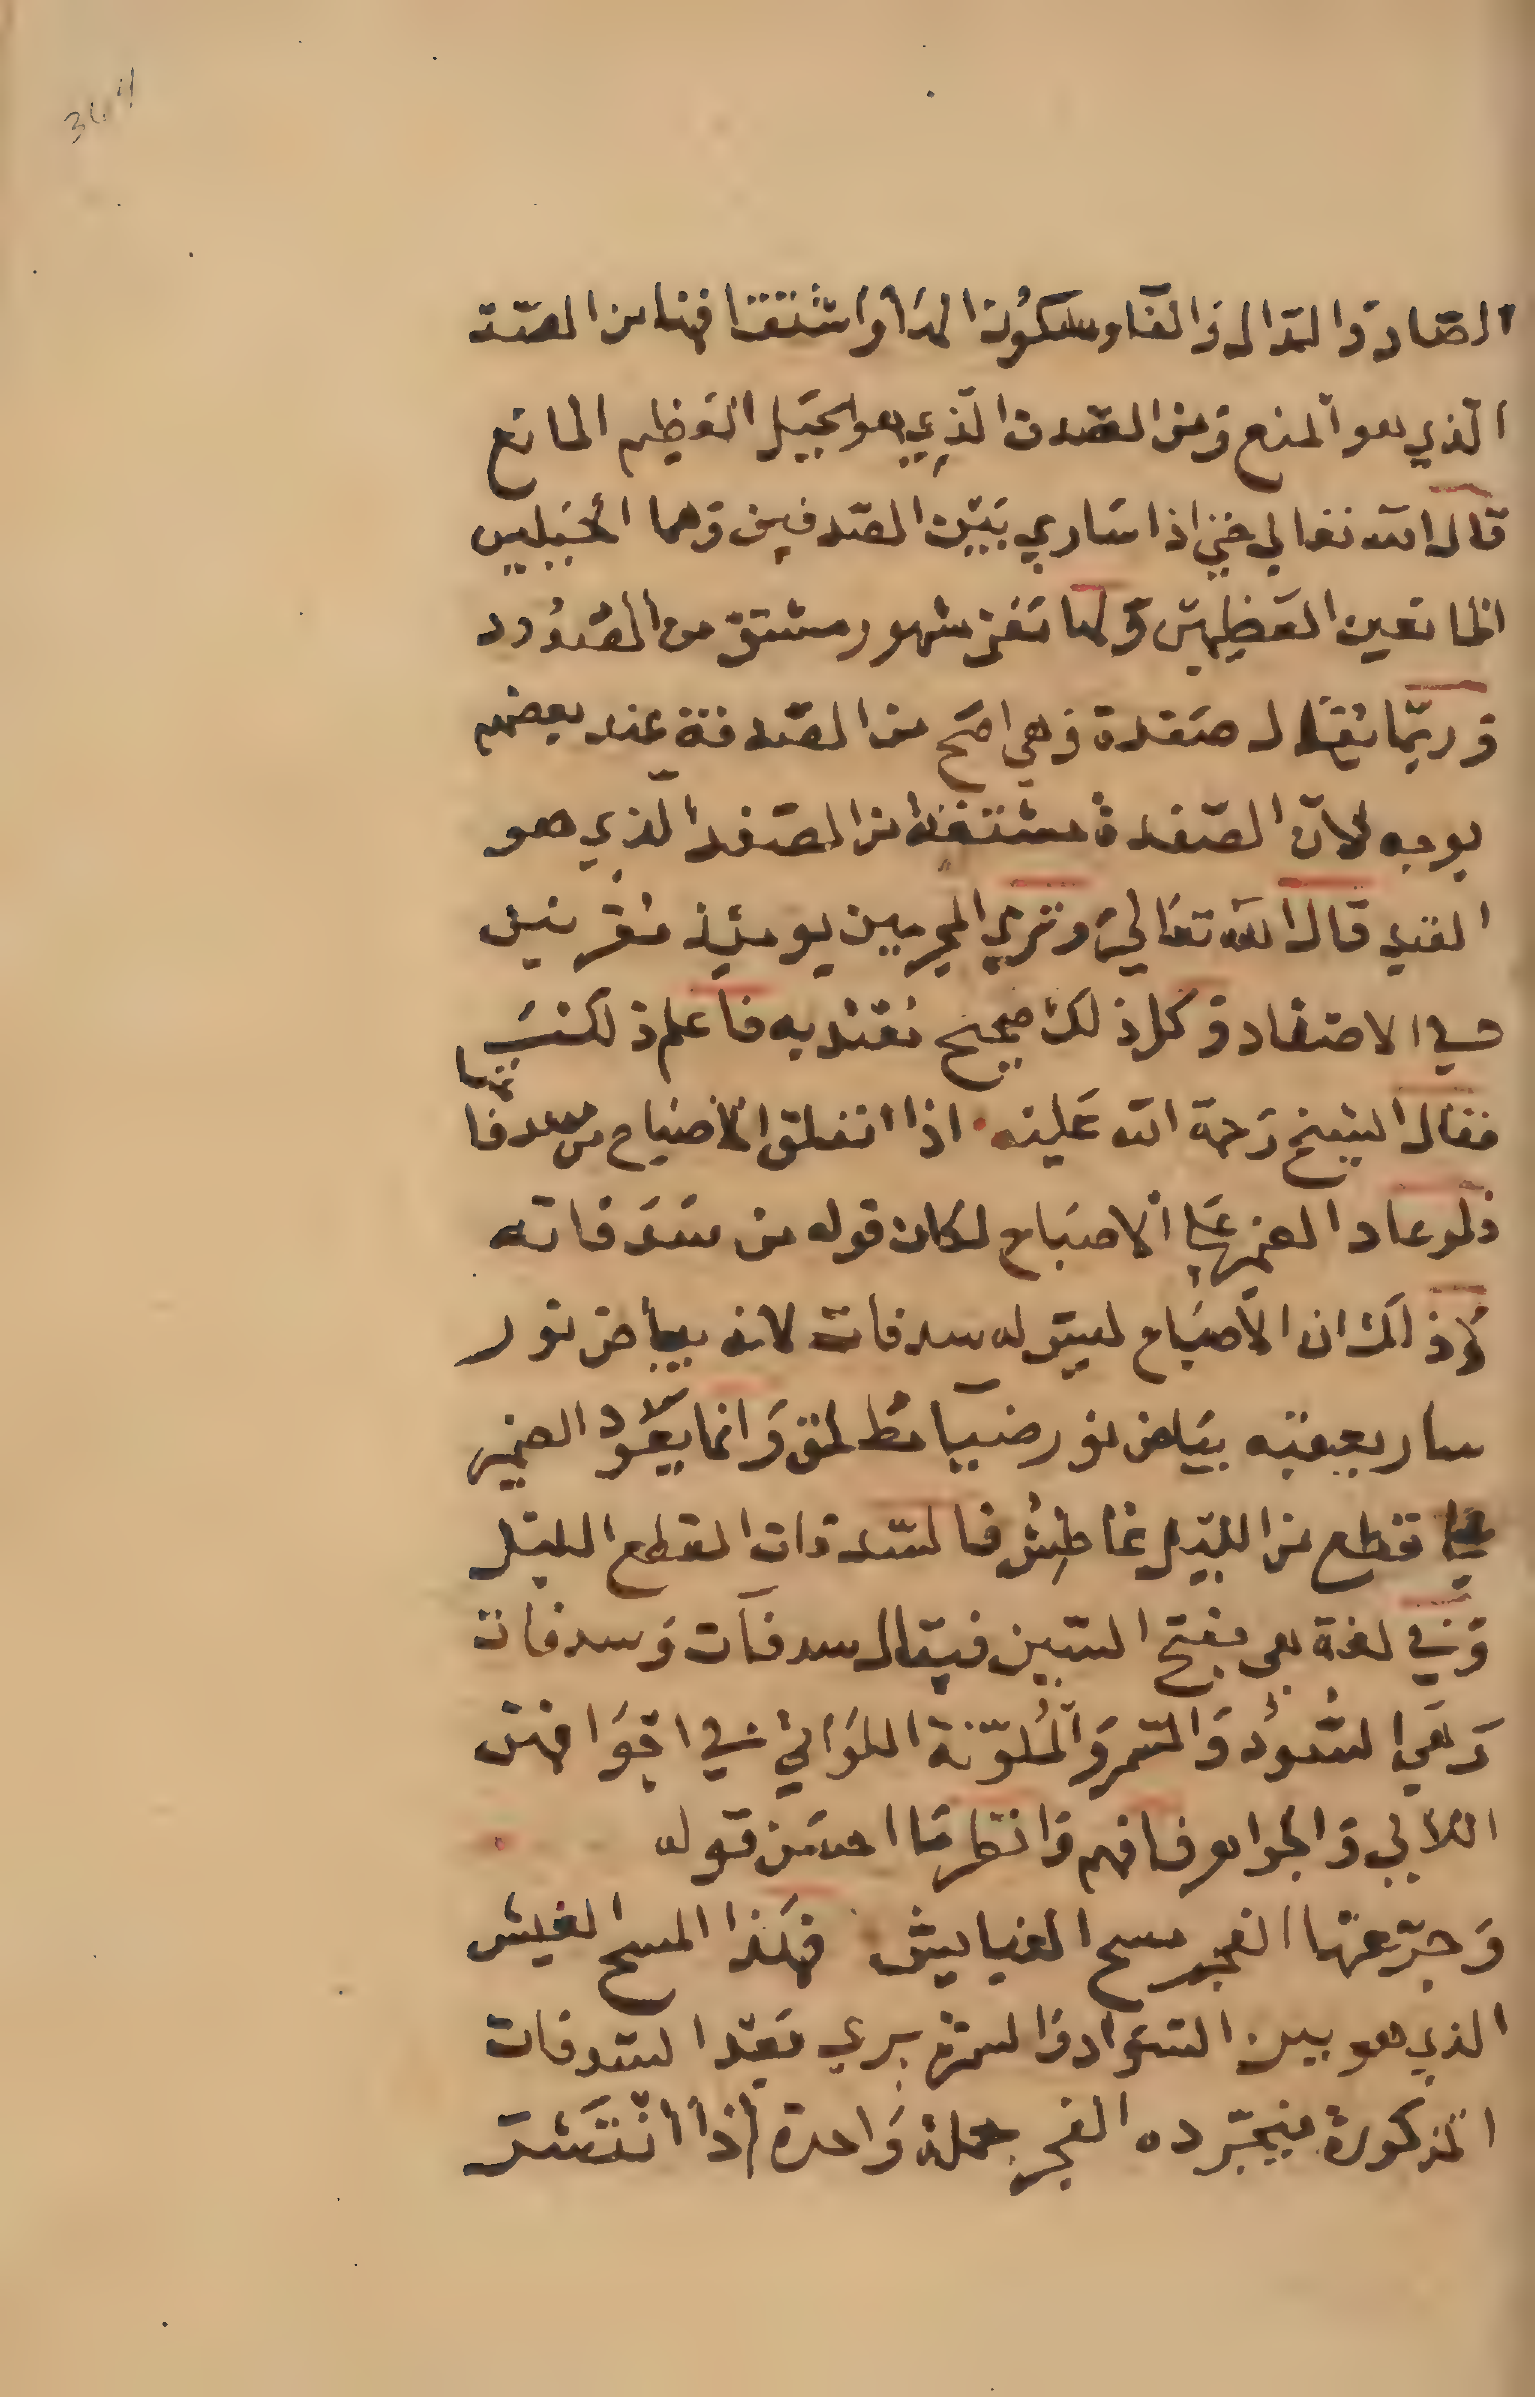 الصاد والدال والفاء وسكون الهاء واشتقاقها من الصد
الذي هو المنع ومن الصدف الذي هو الجبل العظيم المانع
قال الله تعالى حتى اذا ساوي بين الصدفين وهما الجبلين
المانعين العظيمين ولها تغز مشهور مشتق من الصدود
وربما يقال صفدة وهي اصح من الصدفة عند بعضهم
بوجه لان الصفدة مشتقة من الصفد الذي هو
القيد قال الله تعالى وتري المجرمين يومئذ مقرنين
في الاصفاد وكل ذلك صحيح نقتد به فاعلم ذلك
فقال الشيخ رحمة الله عليه اذا انفلق الاصباح من سدفا
فلو عاد الضمير علي الاصباح لكان قوله من سدفاته
وذلك ان الاصباح ليس له سدفات لانه بياض نور
سار يعقبه بياض نور ضيا مطلق وانما يعود الضمير
علي قطع من الليل غاطش فالسدفات القطع الليل
وفي لغة هي بفتح السين فيقال سدفات وسدفات
وهي السود والسمر والملونة اللواتي في اجوافهن
اللالي والجواهر فافهم وانظر ما احسن قوله
وجرعها الفجر مسح الغبايش فهذا المسح الغبش
الذي هو بين السواد والسمرة يري بعد السدفات
المذكورة فيجرده الفجر جملة واحدة اذا انتشر